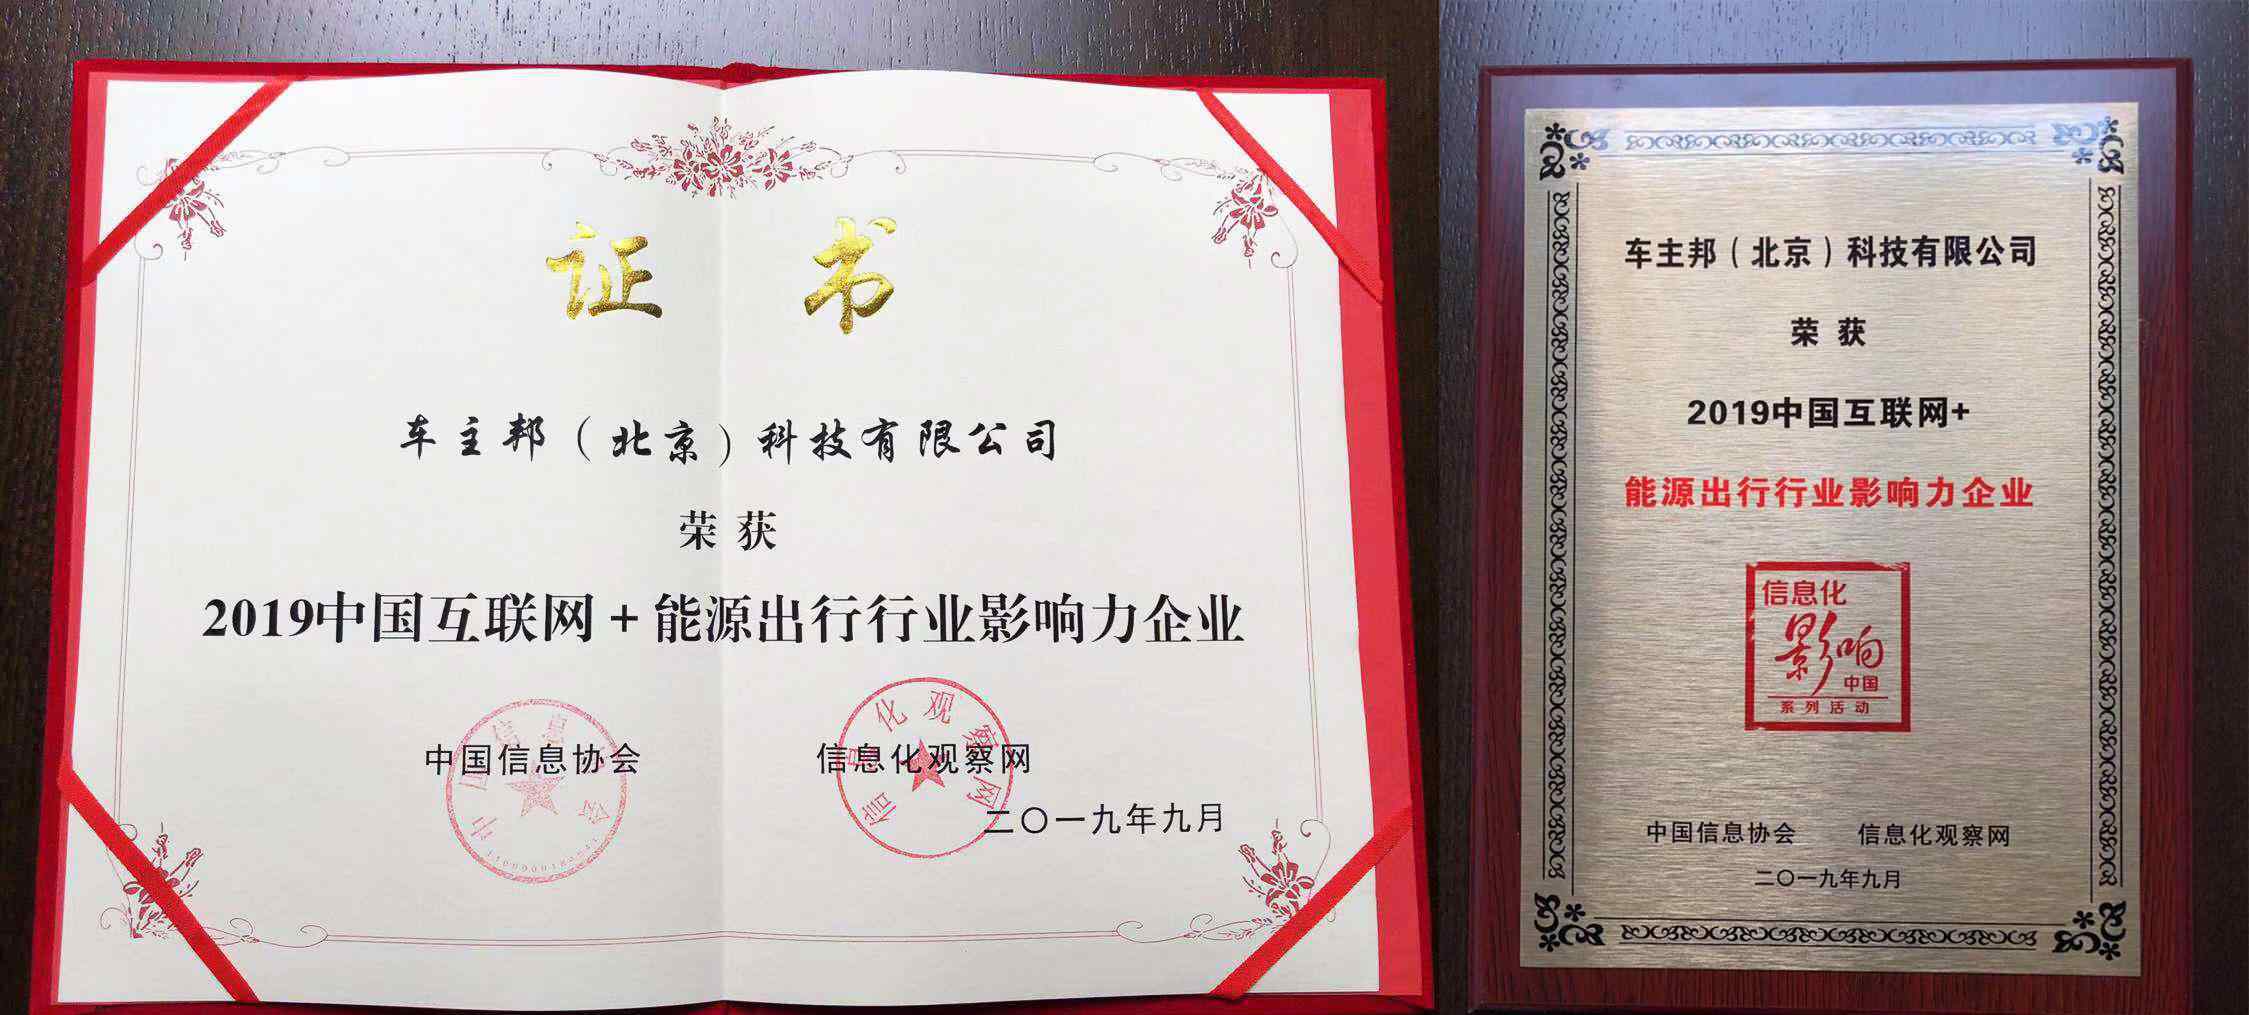 证书
车主邦（北京）科技有限公司
荣获
2019中国互联网+能源出行行业影响力企业
中国信息协会
信息化观察网
信息化观察网
二〇一九年九月
车主邦（北京）科技有限公司
荣获
2019中国互联网+
能源出行行业影响力企业
信息化
影响
中国
系列活动
中国信息协会 信息化观察网
二〇一九年九月